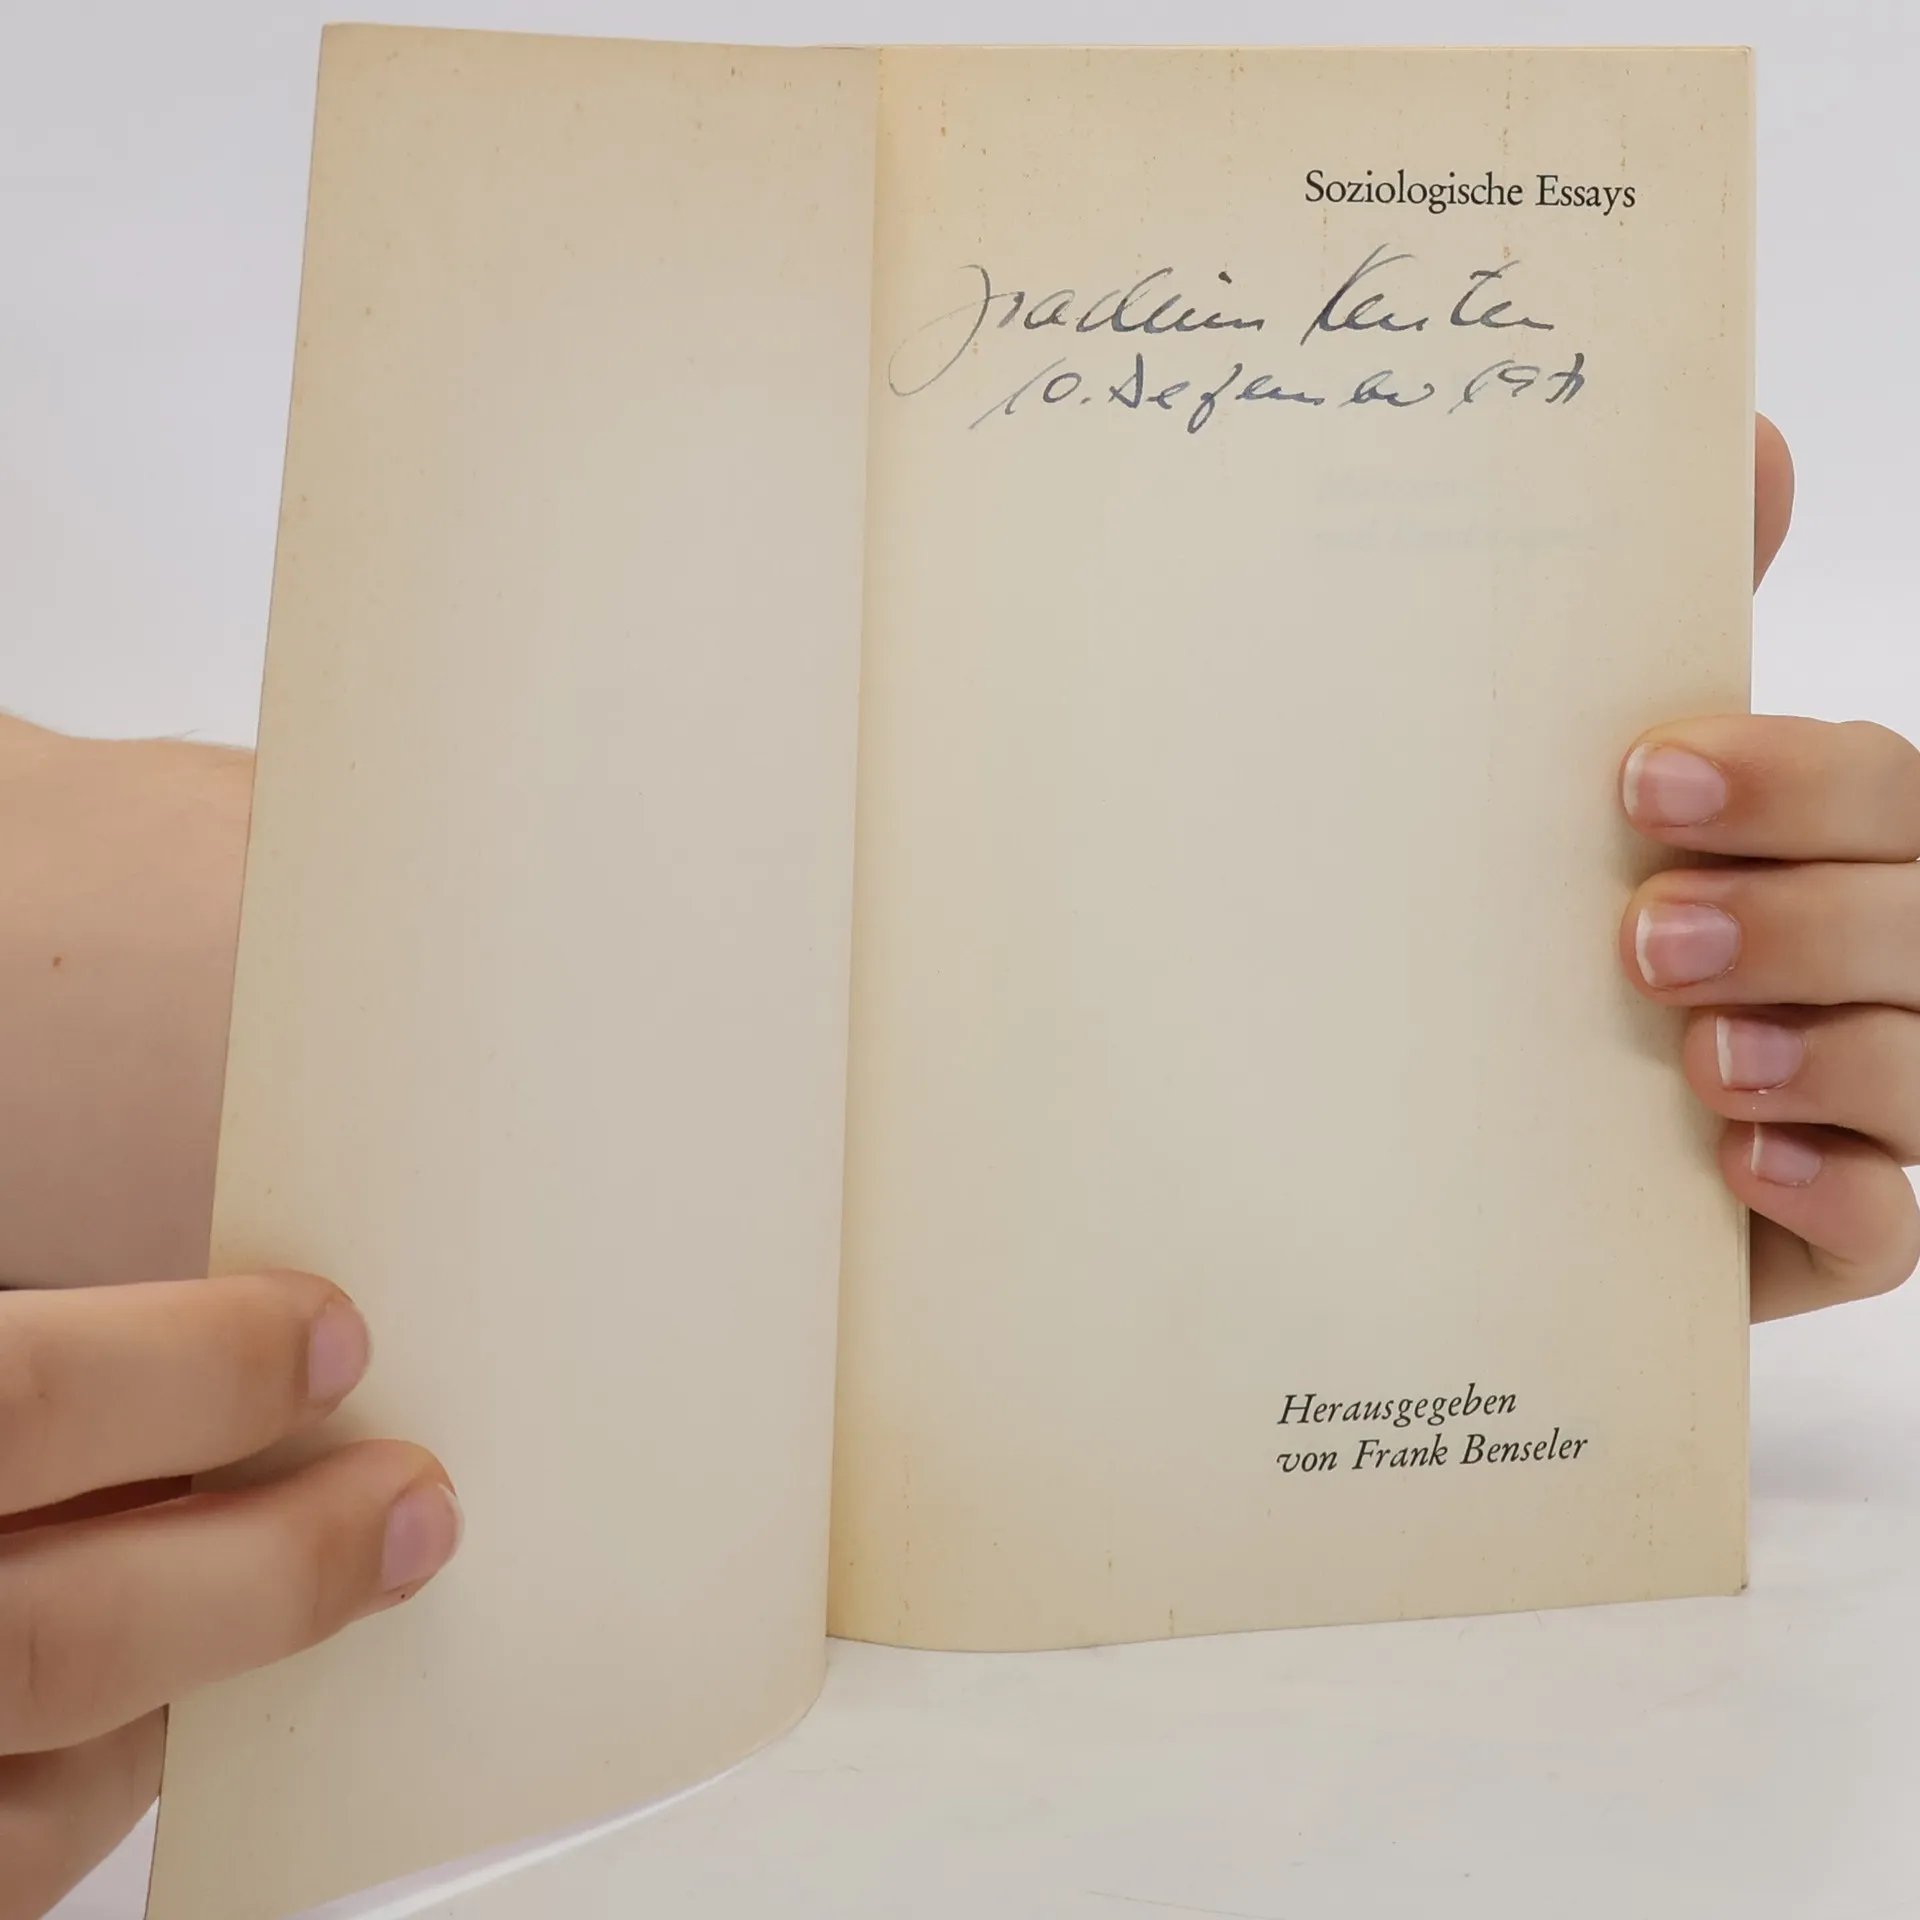 Soziologische Essays
Joachim Kersten
10. Dezember 1971
Herausgegeben
von Frank Benseler